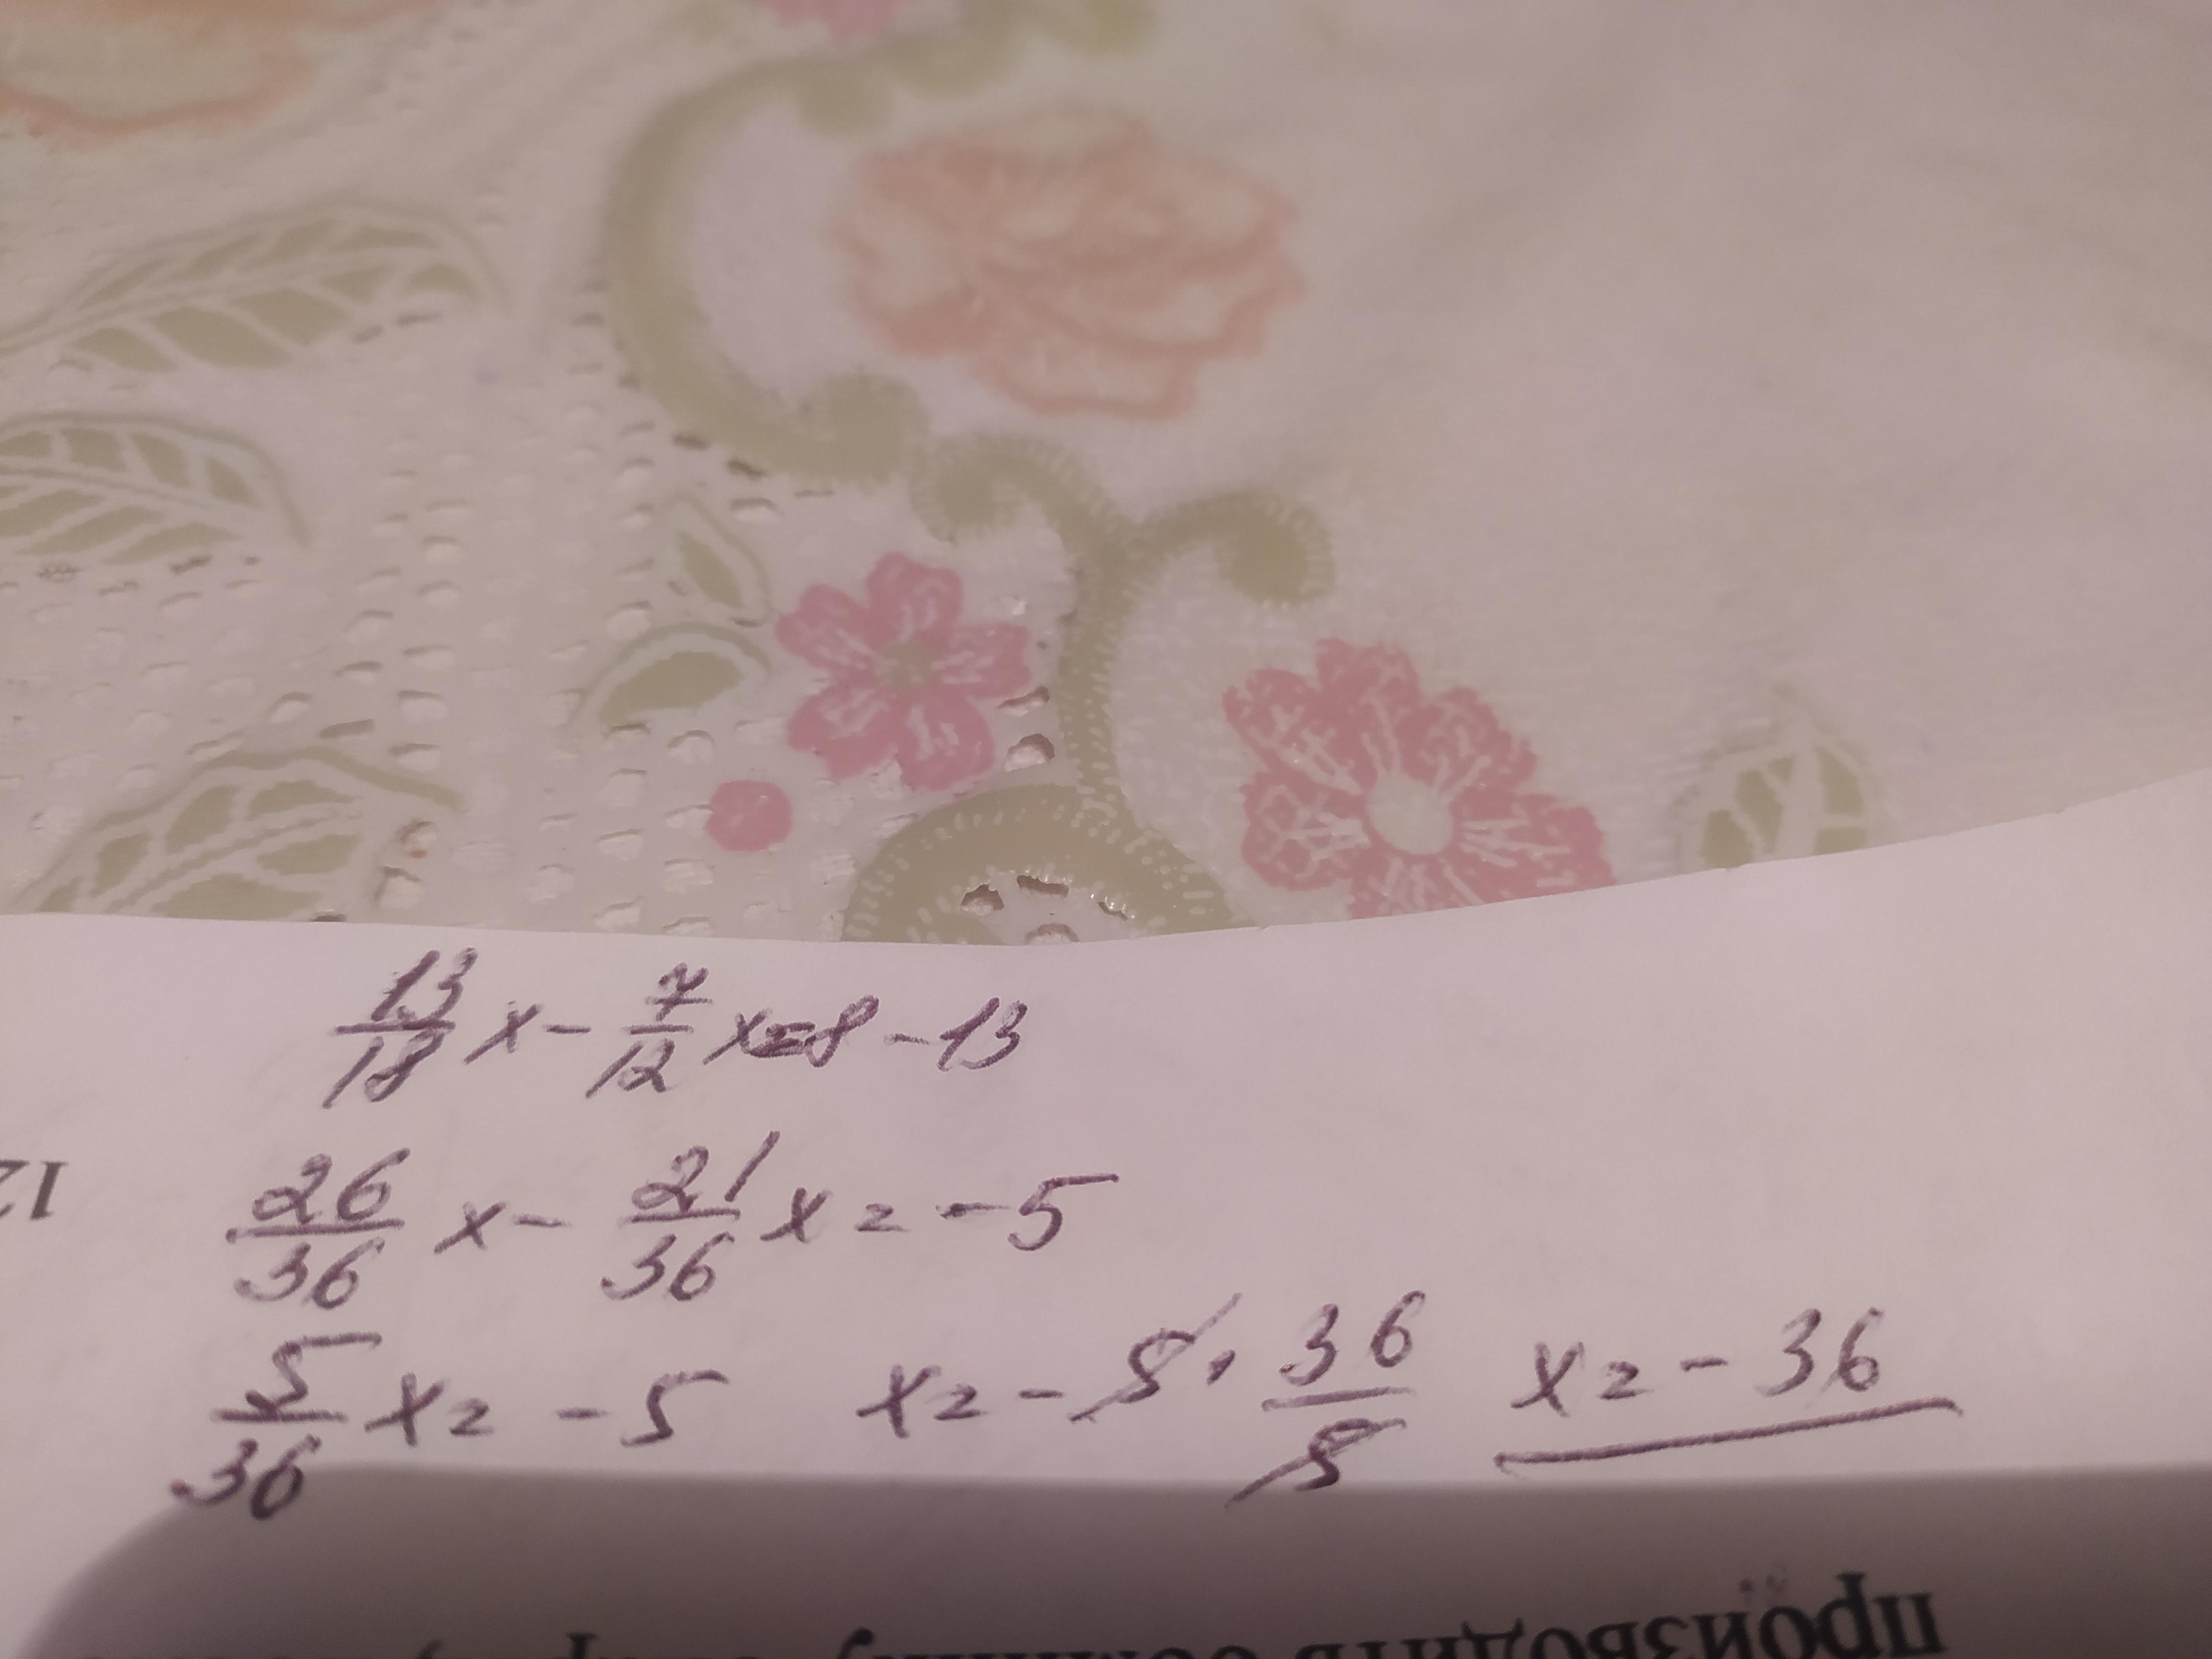 13/18 x - 7/12 x = 8 - 13
12
26/36 x - 21/36 x = -5
5/36 x = -5 x = -5 · 36/5 x = -36
производить